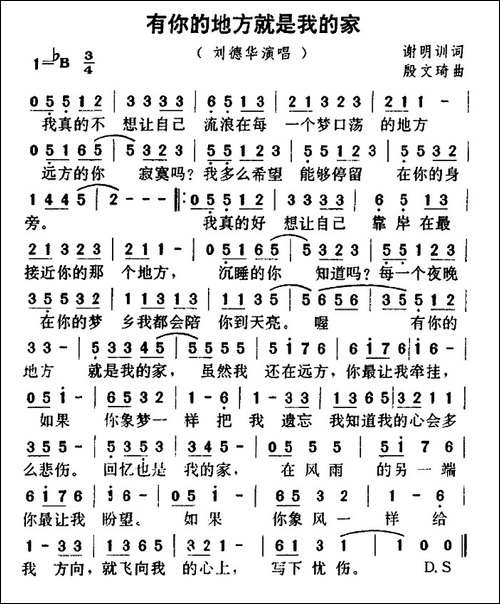 有你的地方就是我的家
（刘德华演唱）
谢明训词
1=♭B 3/4
殷文琦曲
0 5 5 1 2 | 3 3 3 3 | 6 5 1 2 3 | 2 1 3 2 3 | 2 1 1 - |
我真的不 想让自己 流浪在每 一个梦口荡 的地方
0 5 1 6 5 | 5 2 3 3 | 5 5 1 2 3 | 5 5 1 2 3 | 5 5 3 5 |
远方的你 寂寞吗？我多么希望 能够停留 在你的身
1 4 4 5 | 2 - - - ‖: 0 5 5 1 2 | 3 3 3 3 | 6 5 1 3 |
旁。 我真的好 想让自己 靠岸在最
2 1 3 2 3 | 2 1 1 - | 0 5 1 6 5 | 5 3 2 3 | 5 5 1 2 3 |
接近你的那 个地方， 沉睡的你 知道吗？每一个夜晚
3 5 5 3 2 | 1 1 1 2 3 | 1 1 3 5 | 5 6 5 6 | 3 5 5 1 2 |
在你的梦 乡我都会陪 你到天亮。喔 有你的
3 3 - | 5 3 3 4 5 | 5 5 5 5 | 5 1 7 6 | 6 1 7 6 1 6 |
地方 就是我的家， 虽然我 还在远方，你最让我牵挂，
0 5 1 - | 6 5 3 2 | 5 - 5 6 | 1 0 1 6 5 | 3 2 1 1 |
如果 你象梦一 样把我 遗忘 我知道我的心会多
3 5 5 - | 5 3 5 3 | 3 4 5 - | 0 5 5 5 | 5 1 7 6 |
么悲伤。 回忆也是 我的家， 在风雨 的另一端
6 1 7 6 | 1 6 - | 0 5 1 | 6 5 5 3 2 | 1 - 6 |
你最让我 盼望。 如果 你象风一 样给
1 - 3 3 | 1 3 6 5 | 3 2 1 - | 6 1 1 1 | 1 - - ‖
我 方向，就飞向我 的心上， 写下忧伤。 D.S